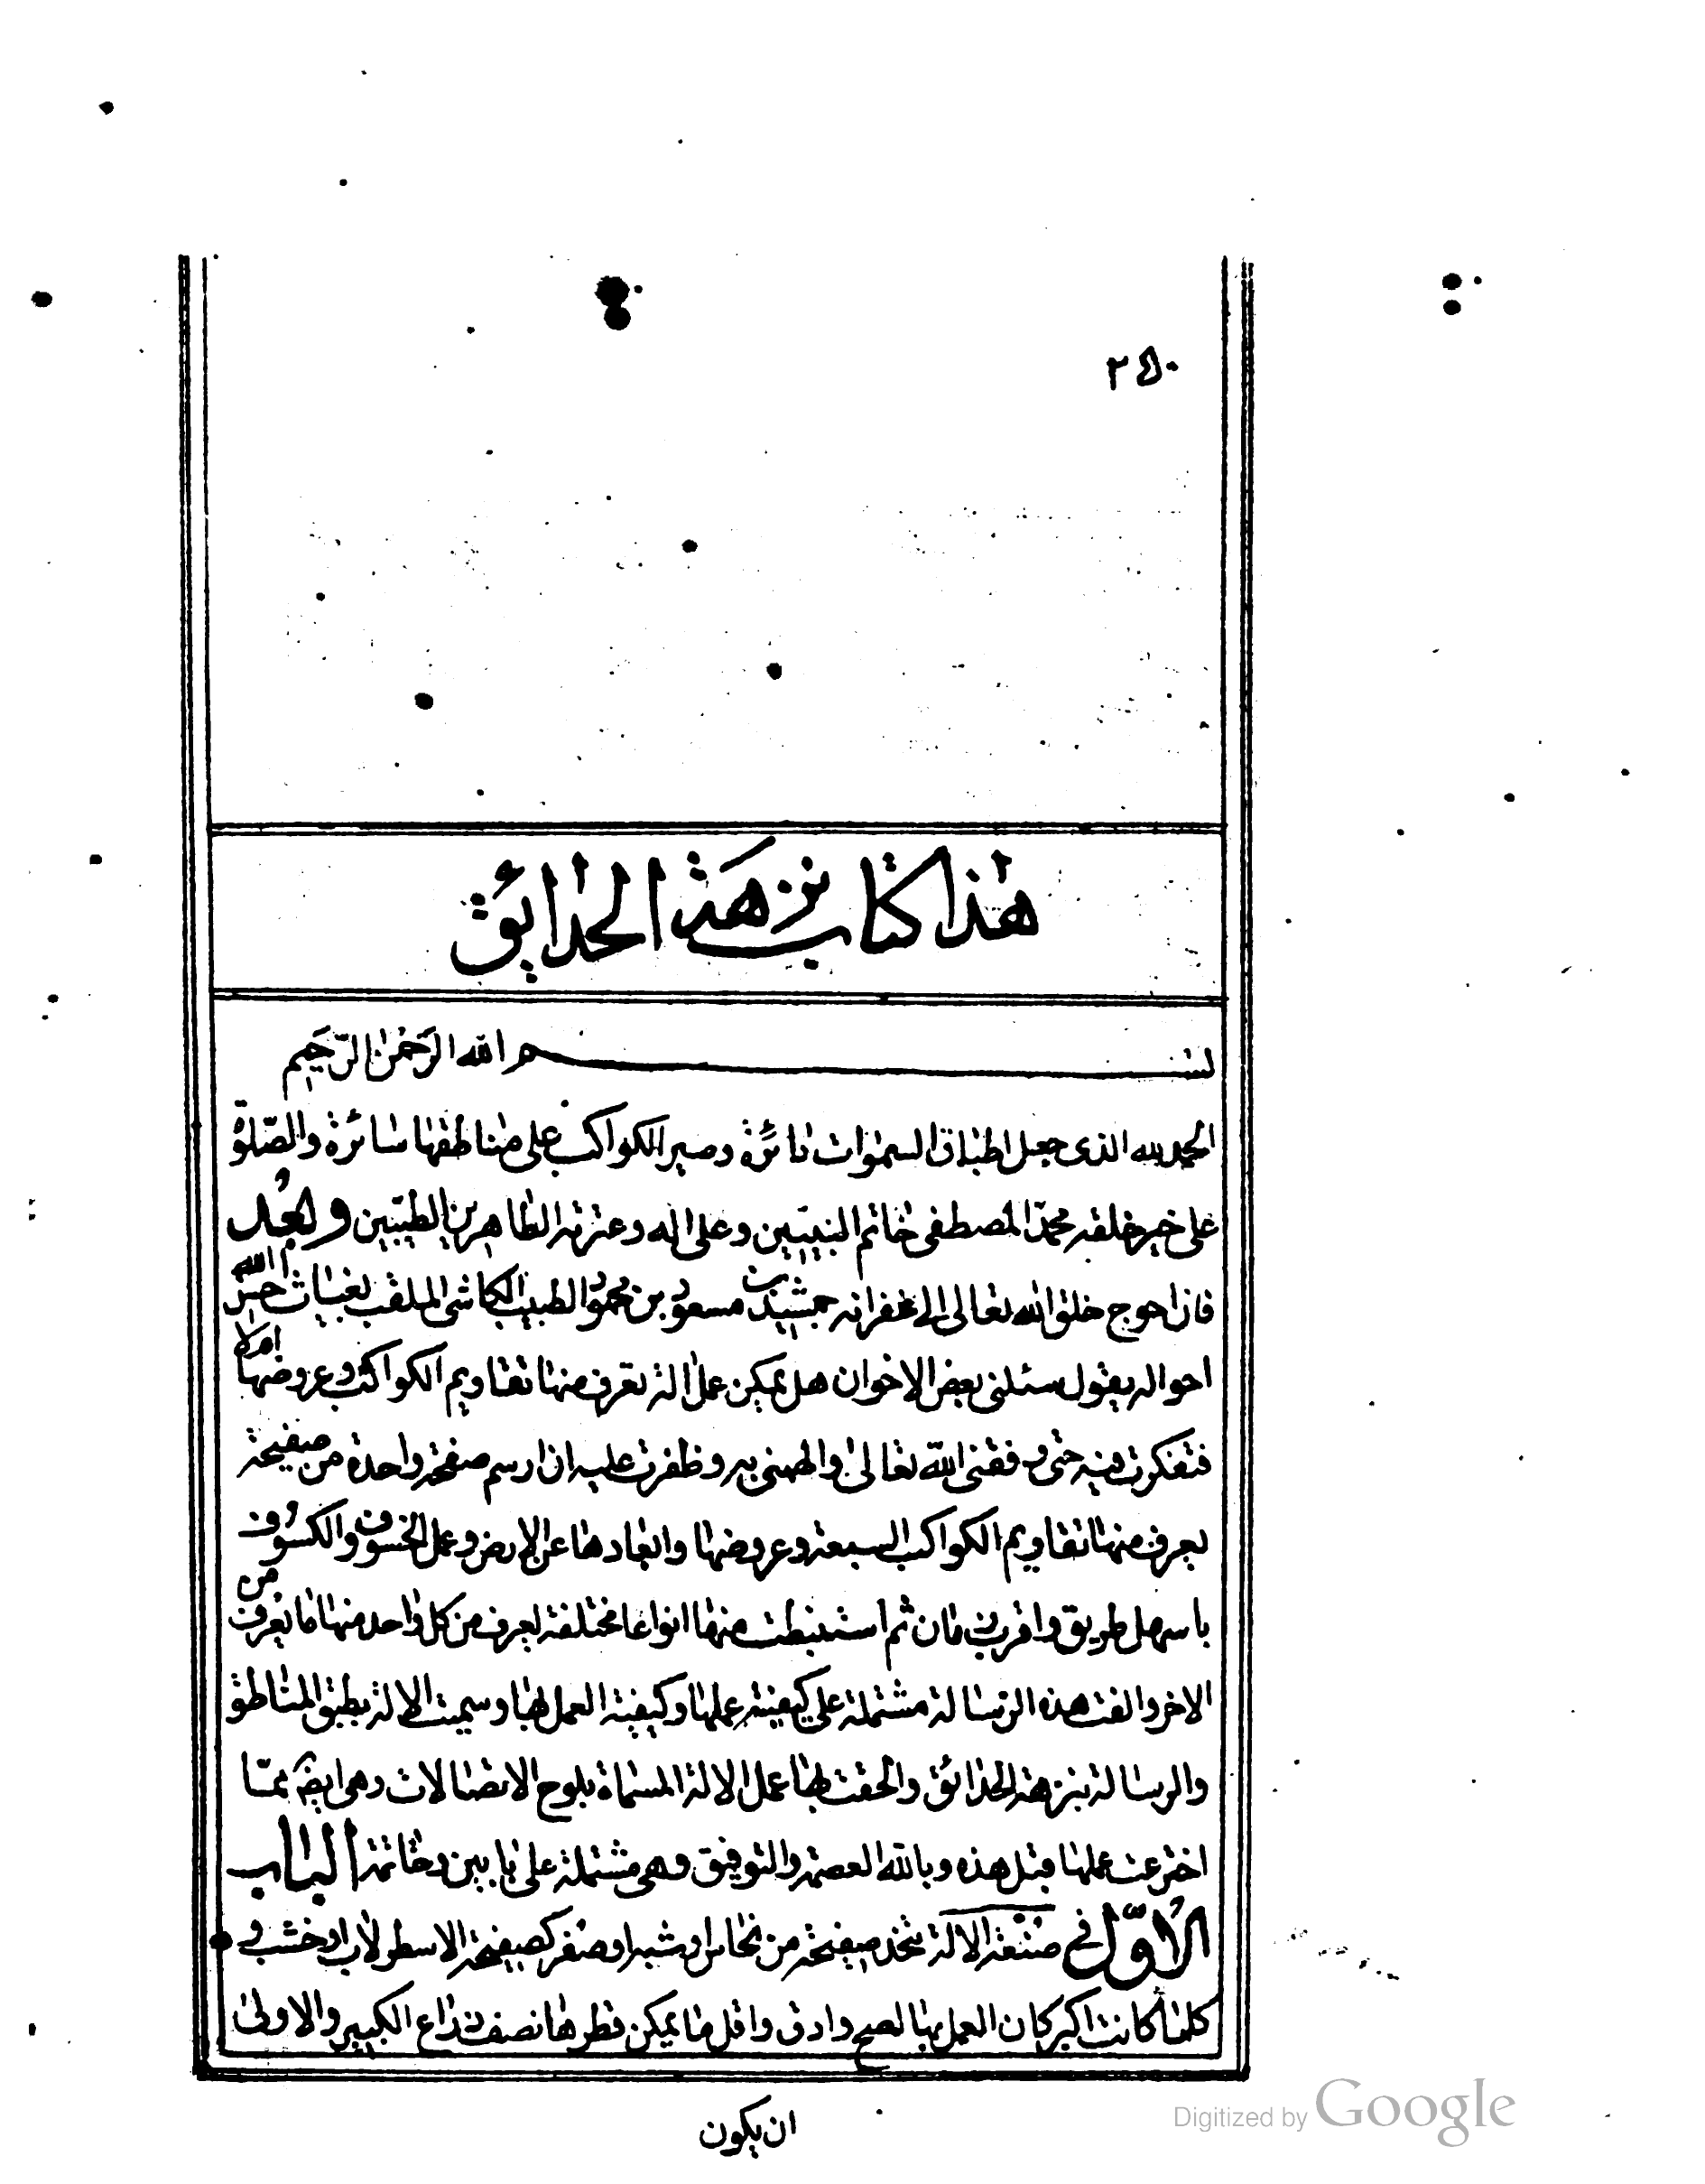 ٢٥٠
هذا كتاب نزهة الحدائق
بسم الله الرحمن الرحيم
الحمد لله الذى جعل اطباق السموات دائرة وصير الكواكب على مناطقها سائرة والصلوة
على خير خلقه محمد المصطفى خاتم النبيين وعلى اله وعترته الطاهرين الطيبين وبعد
فان احوج خلق الله تعالى الى غفرانه جمشيد بن مسعود بن محمود الطبيب الكاشى الملقب بغياث احسن الله
احواله يقول سئلنى بعض الاخوان هل يمكن عمل الة تعرف منها تقاويم الكواكب وعروضها ام لا
فتفكرت فيه حتى وفقنى الله تعالى والهمنى به وظفرت عليه ان ارسم صفحة واحدة من صفيحة
يعرف منها تقاويم الكواكب السبعة وعروضها وابعادها عن الارض وعمل الخسوف والكسوف
باسهل طريق واقرب زمان ثم استنبطت منها انواعا مختلفة يعرف من كل واحد منها ما يعرف من
الاخر والفت هذه الرسالة مشتملة على كيفية عملها وكيفية العمل بها وسميت الالة بطبق المناطق
والرسالة بنزهة الحدائق والحقت بها عمل الالة المسماة بلوح الاتصالات وهى ايضا مما
اخترعت عملها قبل هذه وبالله العصمة والتوفيق وهى مشتملة على بابين وخاتمة الباب
الاول فى صنعة الالة نتخذ صفيحة من نحاس او شبه او صفر كصفيحة الاسطرلاب او خشب و
كلما كانت اكبر كان العمل بها اصح وادق واقل ما يمكن قطرها نصف ذراع الكبير والاولى
ان يكون
Digitized by Google